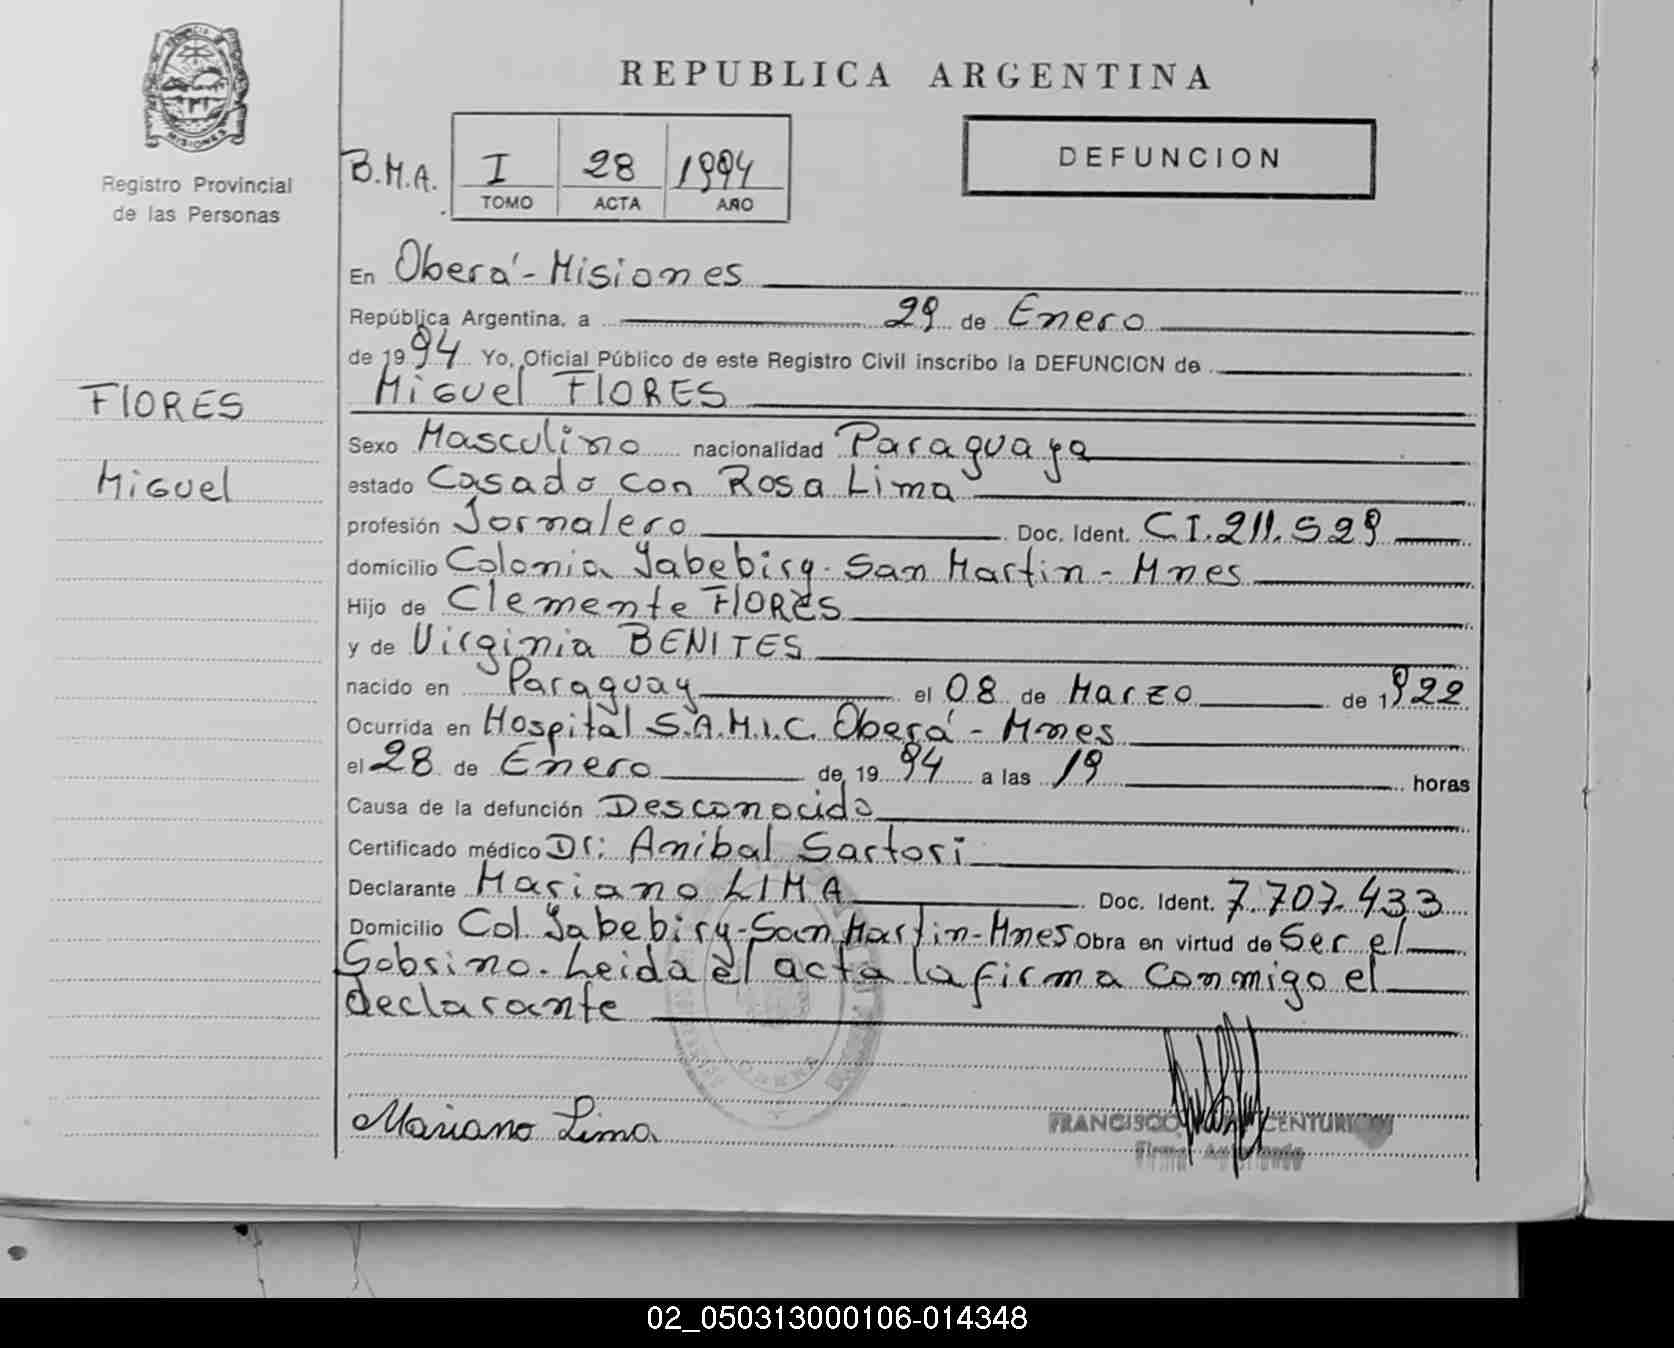 REPUBLICA ARGENTINA
MISIONES
Registro Provincial
de las Personas
B.M.A.
I 28 1994
TOMO ACTA AÑO
DEFUNCION
En Oberá - Misiones
República Argentina, a 29 de Enero
de 1994 Yo, Oficial Público de este Registro Civil inscribo la DEFUNCION de
Miguel FlORES
FlORES
Miguel
Sexo Masculino nacionalidad Paraguaya
estado Casado con Rosa Lima
profesión Jornalero Doc. Ident. C.I. 211.529
domicilio Colonia Yabebiry - San Martin - Mnes
Hijo de Clemente FlORES
y de Virginia BENITES
nacido en Paraguay el 08 de Marzo de 1922
Ocurrida en Hospital S.A.M.I.C. Oberá - Mnes
el 28 de Enero de 1994 a las 19 horas
Causa de la defunción Desconocida
Certificado médico Dr: Anibal Sartori
Declarante Mariano LIMA Doc. Ident. 7.707.433
Domicilio Col. Yabebiry - San Martin - Mnes Obra en virtud de Ser el
Sobrino. Leida el acta la firma conmigo el
declarante
Mariano Lima
FRANCISCO CENTURION
Firma
02_050313000106-014348